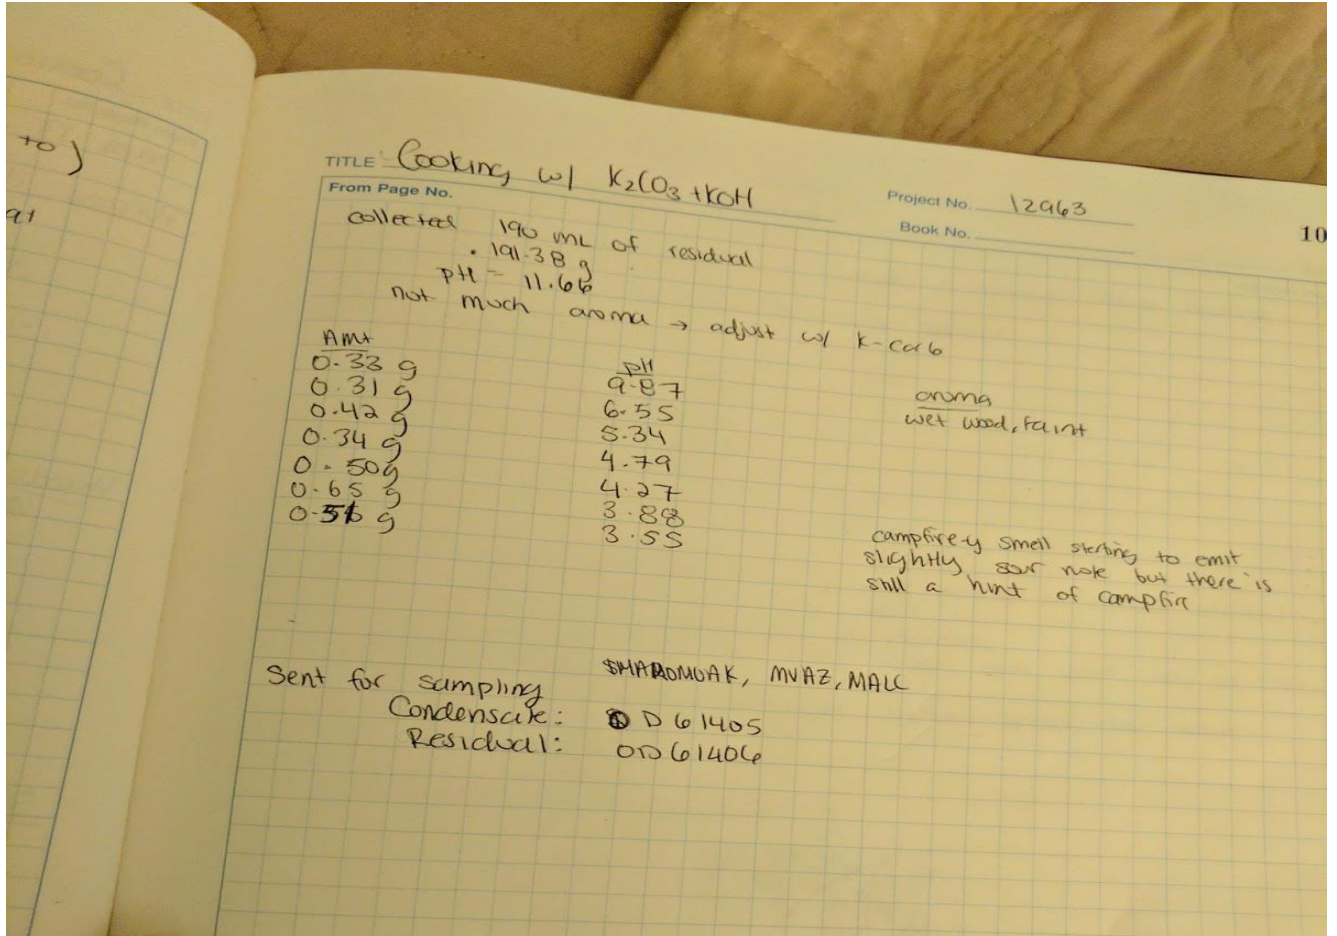 to)
TITLE Cooking w/ K2CO3 + KOH
From Page No.
Project No. 12963
Book No.
10
collected 190 mL of residual
. 191.38 g
pH = 11.66
not much aroma → adjust w/ K-carb
Amt pH aroma
0.33 g 9.87 wet wood, faint
0.31 g 6.55
0.42 g 5.34
0.34 g 4.79
0.50g 4.27
0.65 g 3.88 campfire-y smell starting to emit
0.56 g 3.55 slightly sour note but there is
still a hint of campfire
Sent for sampling MVAZ, MALC
Condensate: D61405
Residual: OD61406